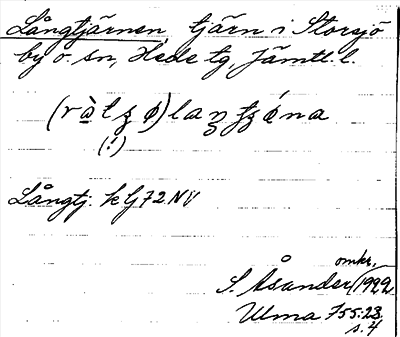 Långtjärnen, tjärn i Storsjö
by o. sn, Hede tg, Jämtl. l.
(!)
Långtj. k G 72 NV
omkr.
S. Åsander 1922
Ulma 755:23
s. 4